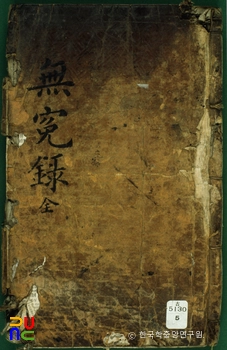 無寃録
全
5130
5
한국학중앙연구원